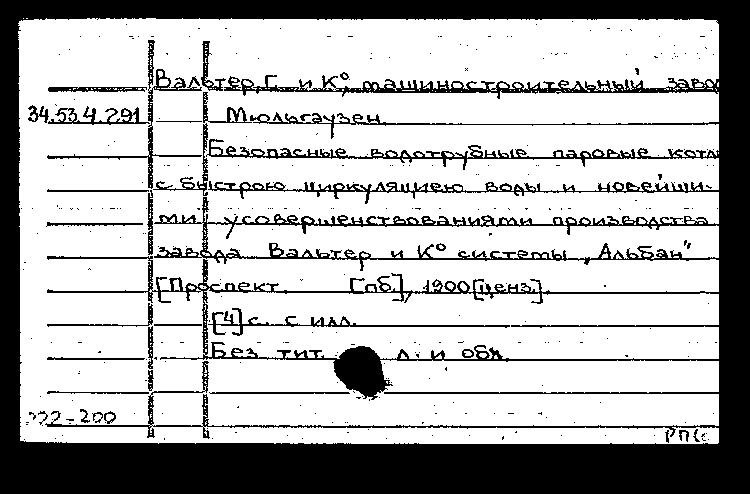 Вальтер, Г. и К°, машиностроительный завод
34.53.4.291 Мюльгаузен.
Безопасные водотрубные паровые котлы
с быстрою циркуляциею воды и новейши-
ми усовершенствованиями производства
завода Вальтер и К° системы „Альбан".
[Проспект. [пб.], 1900 [ценз.].
[4] с. с илл.
Без тит. л. и обл.
222-200
РПС